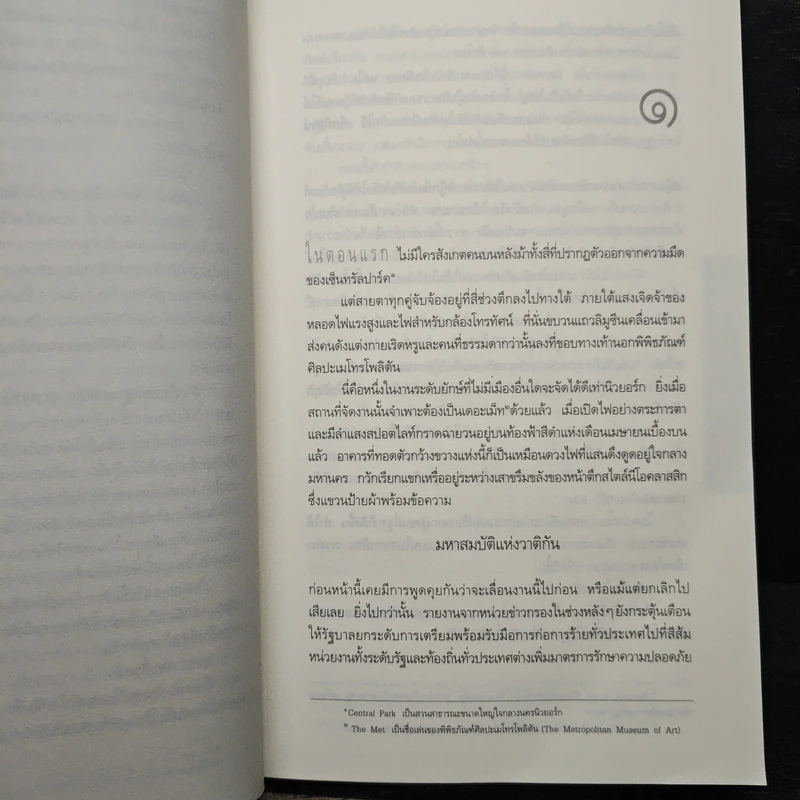 ๑
ในตอนแรก ไม่มีใครสังเกตคนบนหลังม้าทั้งสี่ที่ปรากฏตัวออกจากความมืด
ของเซ็นทรัลปาร์ค๑
แต่สายตาทุกคู่จับจ้องอยู่ที่สี่ช่วงตึกลงไปทางใต้ ภายใต้แสงเจิดจ้าของ
หลอดไฟแรงสูงและไฟสำหรับกล้องโทรทัศน์ ที่นั่นขบวนแถวลิมูซีนเคลื่อนเข้ามา
ส่งคนดังแต่งกายเริดหรูและคนที่ธรรมดากว่านั้นลงที่ขอบทางเท้านอกพิพิธภัณฑ์
ศิลปะเมโทรโพลิตัน
นี่คือหนึ่งในงานระดับยักษ์ที่ไม่มีเมืองอื่นใดจะจัดได้ดีเท่านิวยอร์ก ยิ่งเมื่อ
สถานที่จัดงานนั้นจำเพาะต้องเป็นเดอะเม็ท๒ด้วยแล้ว เมื่อเปิดไฟอย่างตระการตา
และมีลำแสงสปอตไลท์กราดฉายวนอยู่บนท้องฟ้าสีดำแห่งเดือนเมษายนเบื้องบน
แล้ว อาคารที่ทอดตัวกว้างขวางแห่งนี้ก็เป็นเหมือนดวงไฟที่แสนดึงดูดอยู่ใจกลาง
มหานคร กวักเรียกแขกเหรื่ออยู่ระหว่างเสาขรึมขลังของหน้าตึกสไตล์นีโอคลาสสิก
ซึ่งแขวนป้ายผ้าพร้อมข้อความ
มหาสมบัติแห่งวาติกัน
ก่อนหน้านี้เคยมีการพูดคุยกันว่าจะเลื่อนงานนี้ไปก่อน หรือแม้แต่ยกเลิกไป
เสียเลย ยิ่งไปกว่านั้น รายงานจากหน่วยข่าวกรองในช่วงหลังๆ ยังกระตุ้นเตือน
ให้รัฐบาลยกระดับการเตรียมพร้อมรับมือการก่อการร้ายทั่วประเทศไปที่สีส้ม
หน่วยงานทั้งระดับรัฐและท้องถิ่นทั่วประเทศต่างเพิ่มมาตรการรักษาความปลอดภัย
๑ Central Park เป็นสวนสาธารณะขนาดใหญ่ใจกลางนครนิวยอร์ก
๒ The Met เป็นชื่อเล่นของพิพิธภัณฑ์ศิลปะเมโทรโพลิตัน (The Metropolitan Museum of Art)